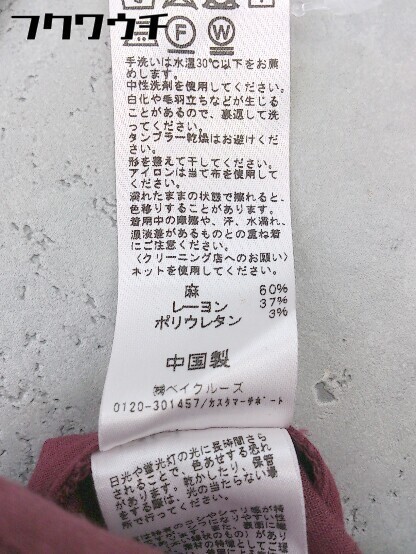 フクワウチ
F W
手洗いは水温30℃以下をお薦
めします。
中性洗剤を使用してください。
白化や毛羽立ちなどが生じる
ことがあるので、裏返して洗
ってください。
タンブラー乾燥はお避けくだ
さい。
形を整えて干してください。
アイロンは当て布を使用して
ください。
濡れたままの状態で擦れると、
色移りすることがあります。
着用中の摩擦や、汗、水濡れ、
濃淡差があるものとの重ね着
にご注意ください。
〈クリーニング店へのお願い〉
ネットを使用してください。
麻 60%
レーヨン 37%
ポリウレタン 3%
中国製
㈱ベイクルーズ
0120-301457/カスタマーサポート
日光や蛍光灯の光に長時間さら
されることで、色あせする恐れ
があります。乾かしたり、保管
する際は、光の当たらない場
所で行ってください。